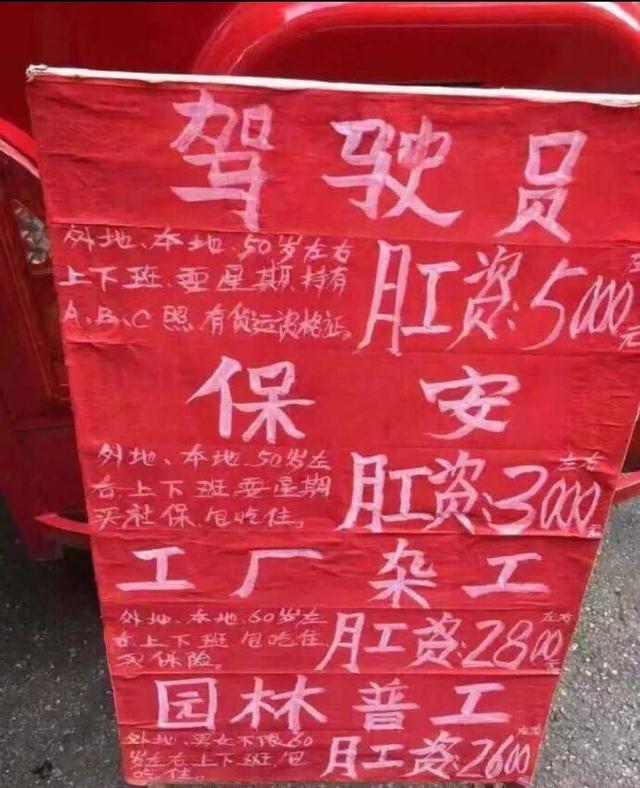 驾驶员
外地、本地、50岁左右
上下班、耍星期、持有
A、B、C照有货运资格证。
月工资:5000左右元
保安
外地、本地、50岁左
右上下班耍星期
买社保、包吃住。
月工资:3000左右元
工厂杂工
外地、本地、60岁左
右上下班、包吃住
买保险。
月工资:2800左右元
园林普工
外地、男女不限60
岁左右上下班、包
吃住。
月工资:2600左右元